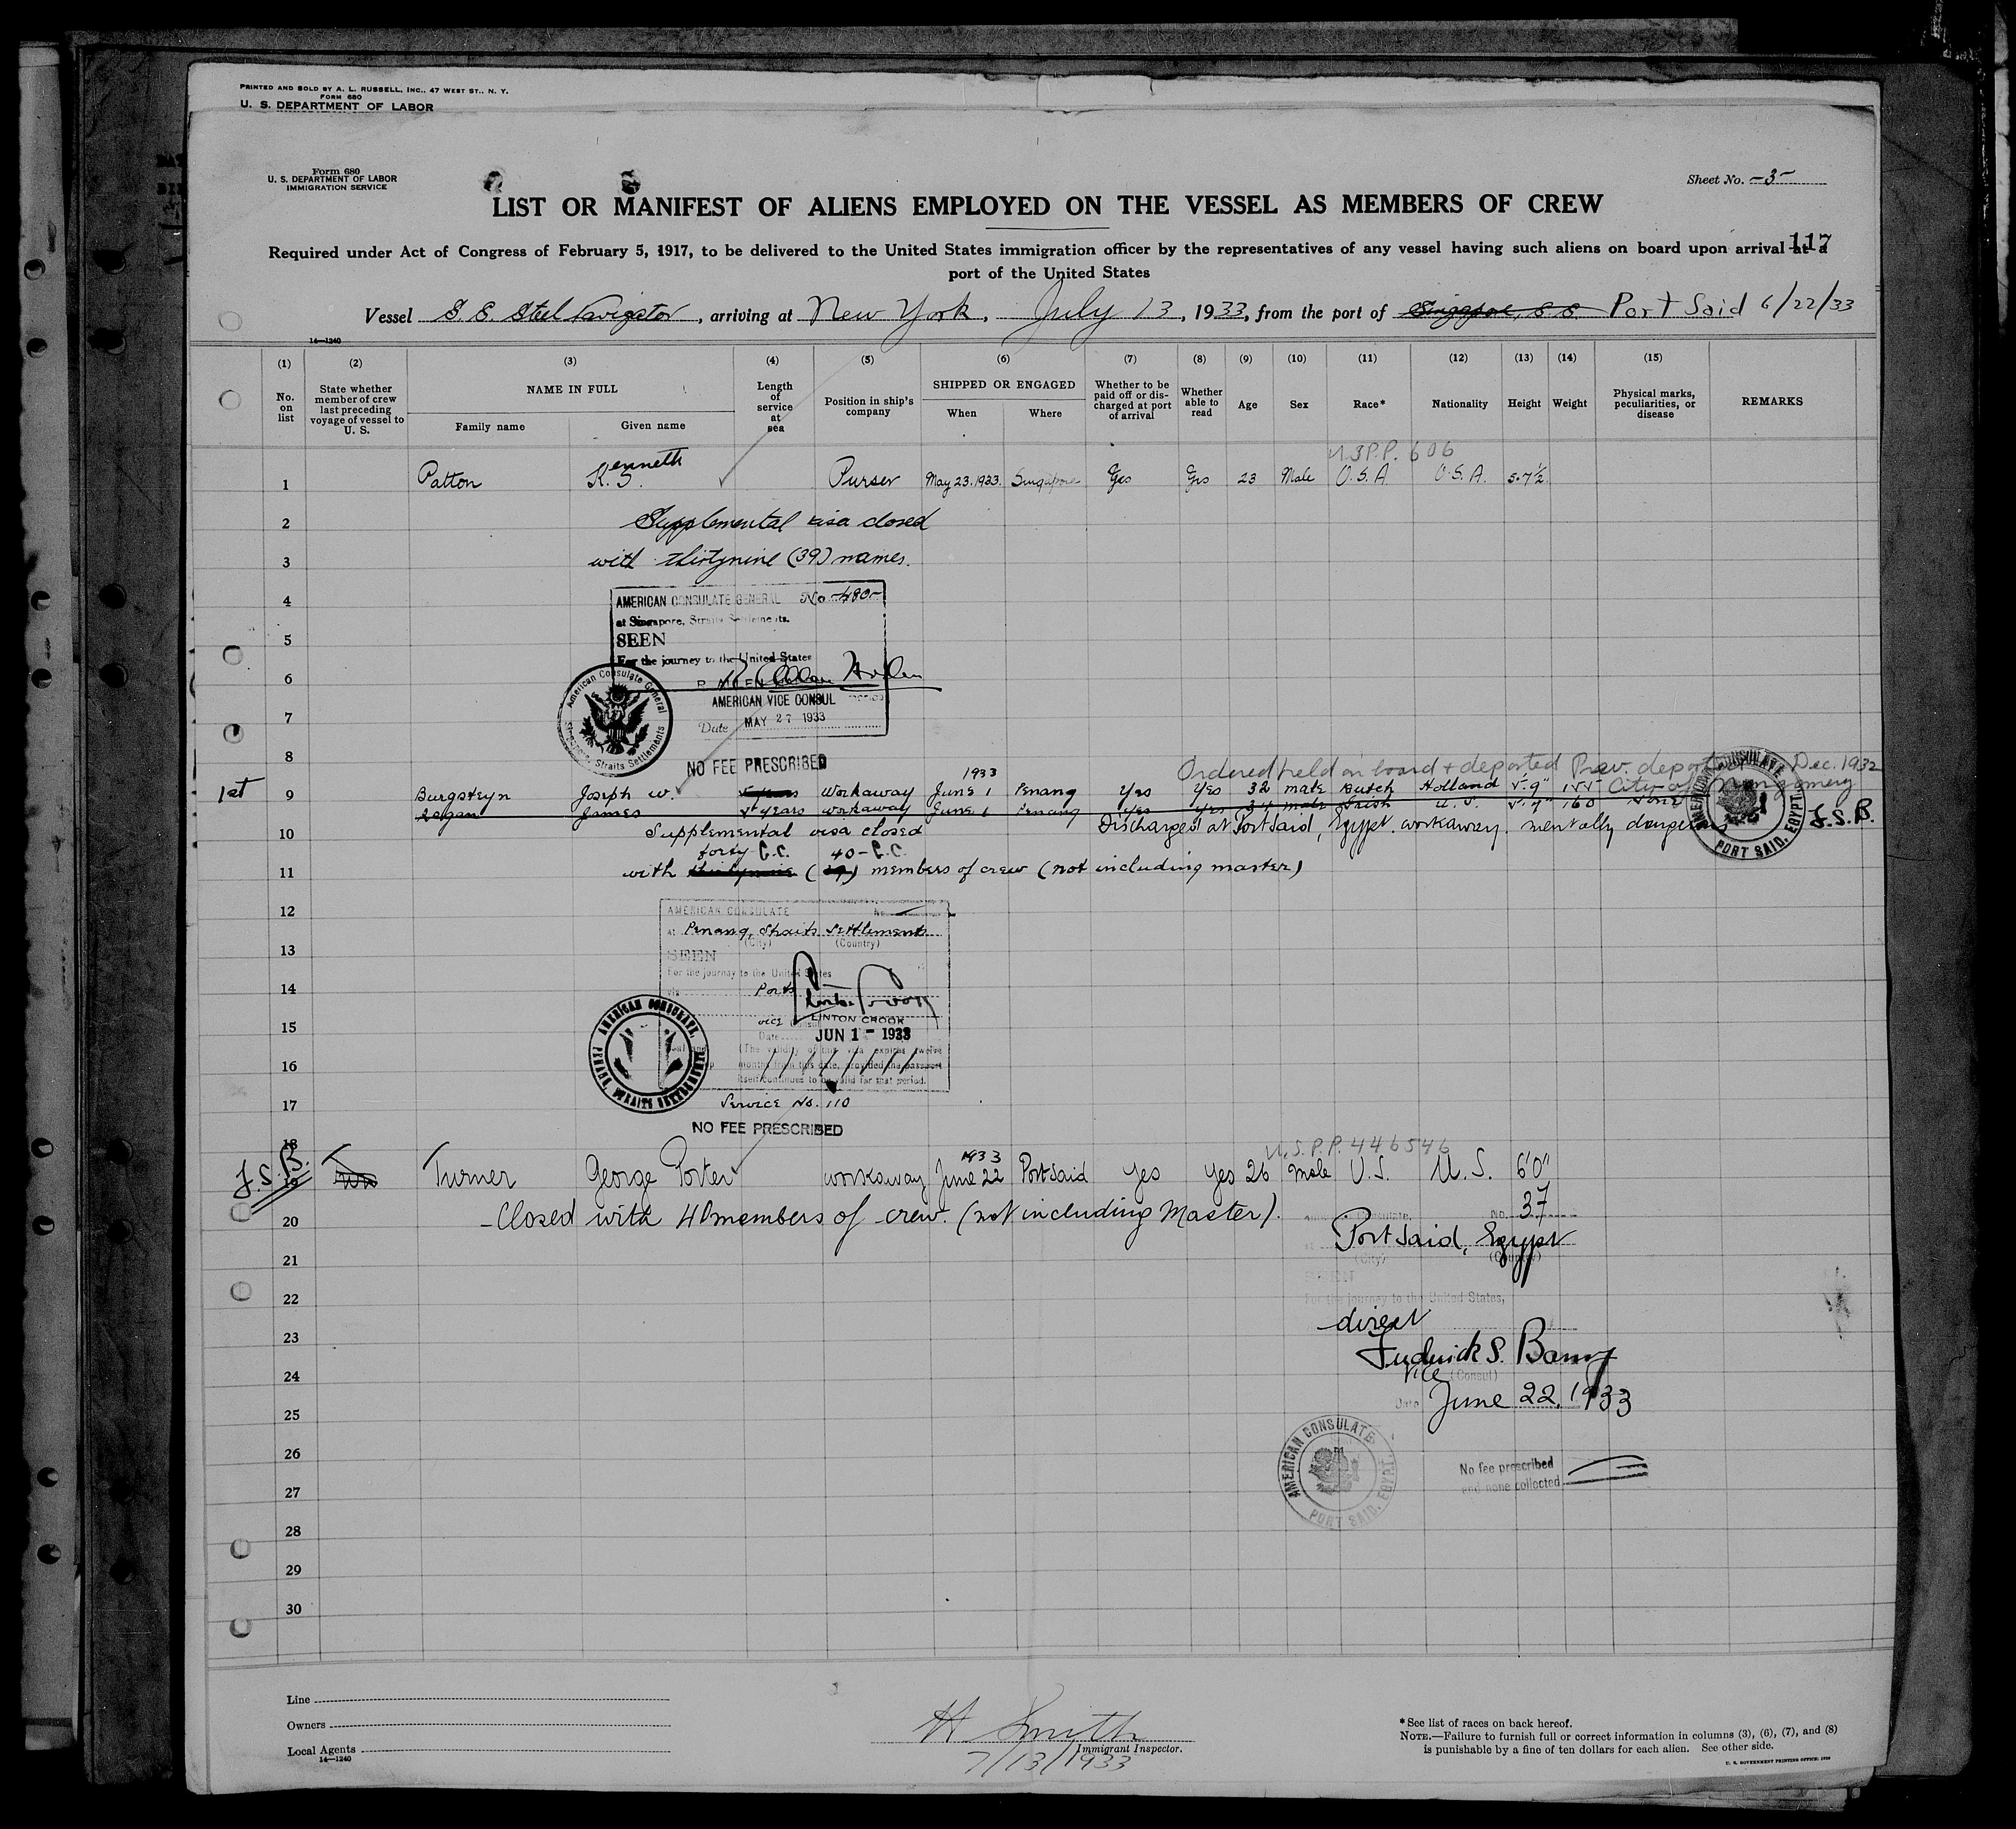 PRINTED AND SOLD BY A. L. RUSSELL, INC., 47 WEST ST., N. Y.
FORM 680
U. S. DEPARTMENT OF LABOR
Form 680
U. S. DEPARTMENT OF LABOR
IMMIGRATION SERVICE
Sheet No. -3-
LIST OR MANIFEST OF ALIENS EMPLOYED ON THE VESSEL AS MEMBERS OF CREW
117
Required under Act of Congress of February 5, 1917, to be delivered to the United States immigration officer by the representatives of any vessel having such aliens on board upon arrival at a
port of the United States
Vessel S. S. Steel Navigator, arriving at New York, July 13, 1933, from the port of Singapore, S.S. Port Said 6/22/33
14—1240
(1) (2) (3) (4) (5) (6) (7) (8) (9) (10) (11) (12) (13) (14) (15)
No. on list
State whether member of crew last preceding voyage of vessel to U. S.
NAME IN FULL
Family name Given name
Length of service at sea
Position in ship's company
SHIPPED OR ENGAGED
When Where
Whether to be paid off or discharged at port of arrival
Whether able to read
Age Sex Race* Nationality Height Weight
Physical marks, peculiarities, or disease
REMARKS
U.S.P.P. 606
1 Patton Kenneth S. Purser May 23. 1933. Singapore Yes Yes 23 Male U.S.A. U.S.A. 5-7½
2 Supplemental visa closed
3 with thirtynine (39) names.
4 AMERICAN CONSULATE GENERAL No -480-
at Singapore, Straits Settlements.
5 SEEN
For the journey to the United States
6
AMERICAN VICE CONSUL
7 Date MAY 27 1933
American Consulate General
Singapore, Straits Settlements
8 NO FEE PRESCRIBED
Ordered held on board & deported Prev. deported Dec. 1932
City of Montgomery
1933
1st 9 Burgsteyn Joseph W. years Workaway June 1 Penang Yes Yes 32 male Dutch Holland 5'.9" 155
Logan James years workaway June 1 Penang Yes Yes 34 male Irish U.S. 5'.9" 160 None
10 Supplemental visa closed Discharged at Port Said, Egypt. workaway. mentally dangerous F.S.B.
forty C.C. 40-C.C.
11 with thirtynine (39) members of crew (not including master)
AMERICAN CONSULATE PORT SAID, EGYPT
12 AMERICAN CONSULATE No.
at Penang, Straits Settlements
13 (City) (Country)
SEEN
For the journey to the United States
14 via Ports
15 vice Consul LINTON CROOK
Date JUN 1 - 1933
(The validity of this visa expires twelve
16 months from this date, provided the passport
itself continues to be valid for that period.
AMERICAN CONSULATE, PENANG, STRAITS SETTLEMENTS
17 Service No. 110
NO FEE PRESCRIBED
18 U.S.P.P. 446546
1933
F.S.B. 19 Turner George Porter workaway June 22 Port Said Yes Yes 26 Male U.S. U.S. 6'0"
20 -Closed with 40 members of crew. (not including Master).
American Consulate, No. 37
at Port Said, Egypt
21 (City) (Country)
SEEN
22 For the journey to the United States,
direct
23 Frederick S. Barny
24 Vice (Consul)
Date June 22, 1933
25
26 AMERICAN CONSULATE PORT SAID, EGYPT
No fee prescribed
27 and none collected
28
29
30
Line
Owners
Local Agents
14—1240
H Smith
Immigrant Inspector.
7/13/1933
* See list of races on back hereof.
NOTE.—Failure to furnish full or correct information in columns (3), (6), (7), and (8)
is punishable by a fine of ten dollars for each alien. See other side.
U. S. GOVERNMENT PRINTING OFFICE: 1929